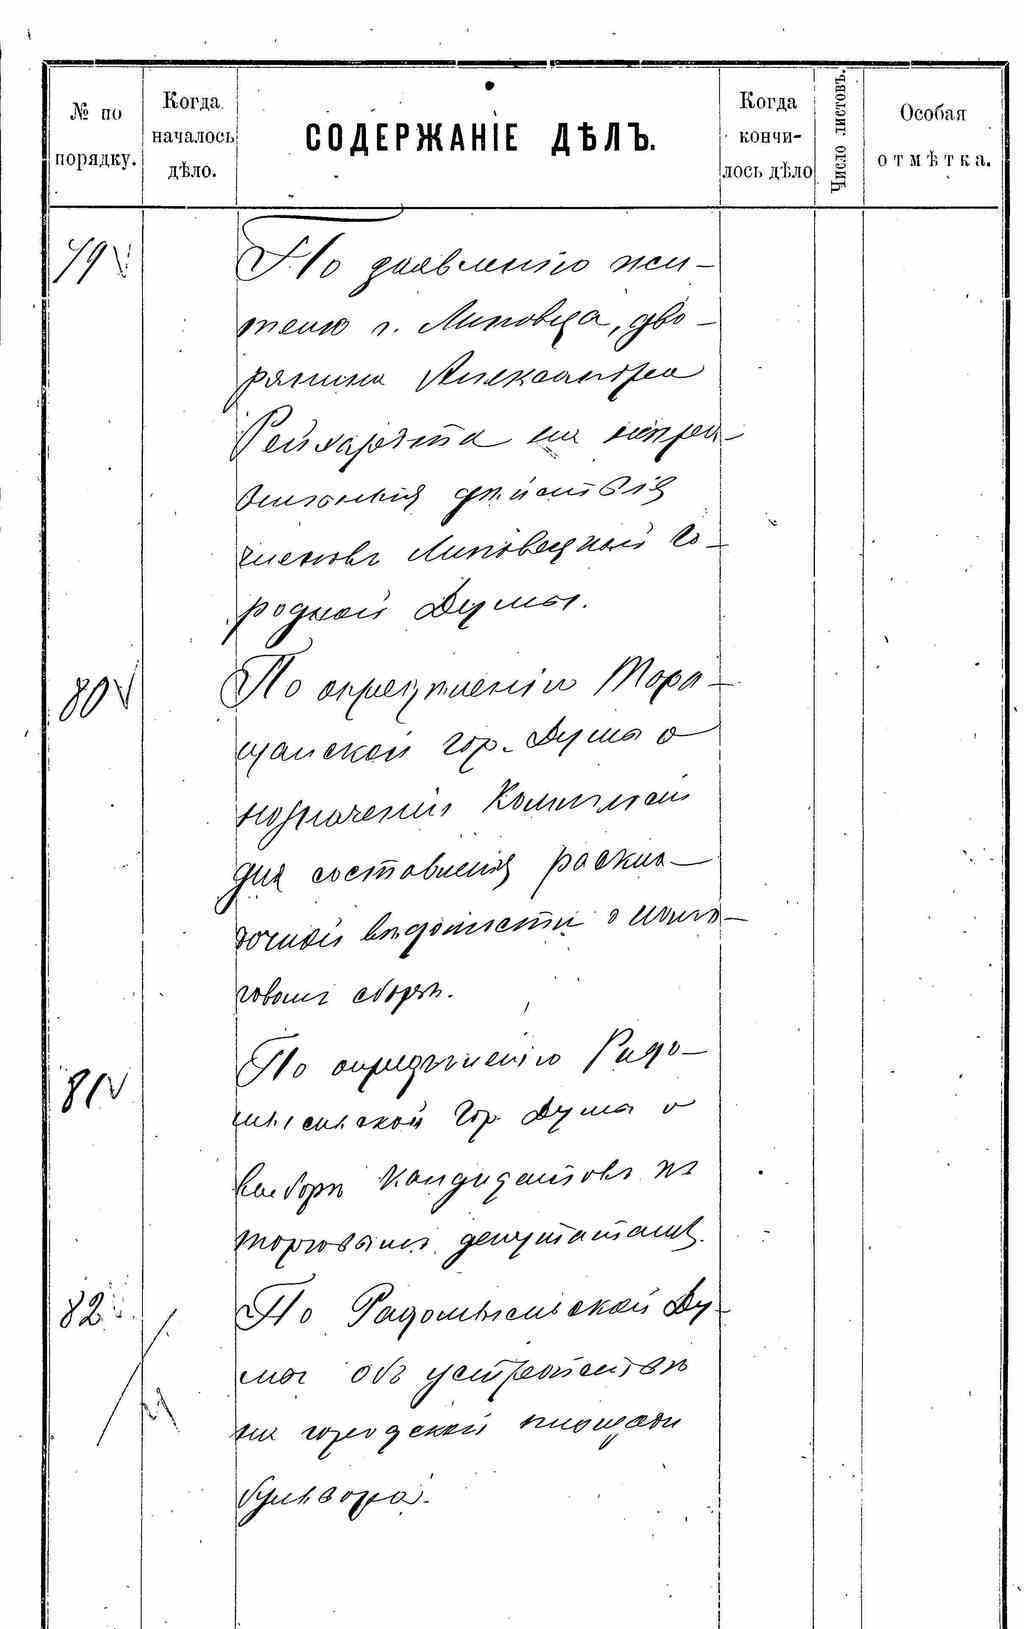 № по порядку.
Когда началось дѣло.
СОДЕРЖАНІЕ ДѢЛЪ.
Когда кончи-лось дѣло
Число листовъ.
Особая отмѣтка.
79
По заявленію жи-
телю г. Липовца, дво-
рянина Александра
Рейхардта на неправ-
дѣйствія
членовъ Липовецкой го-
родской Думы.
80
По опредѣленію Тара-
щанской гор. Думы о
назначеніи Коммисіи
для составленія раскла-
дочной вѣдомости о нало-
говомъ сборѣ.
81
По опредѣленію Радо-
мысльской Гор. Думы о
выборѣ Кандидатовъ къ
торговымъ депутатамъ.
82
По Радомысльской Ду-
мы объ устройствѣ
на городской площади
бульвара.